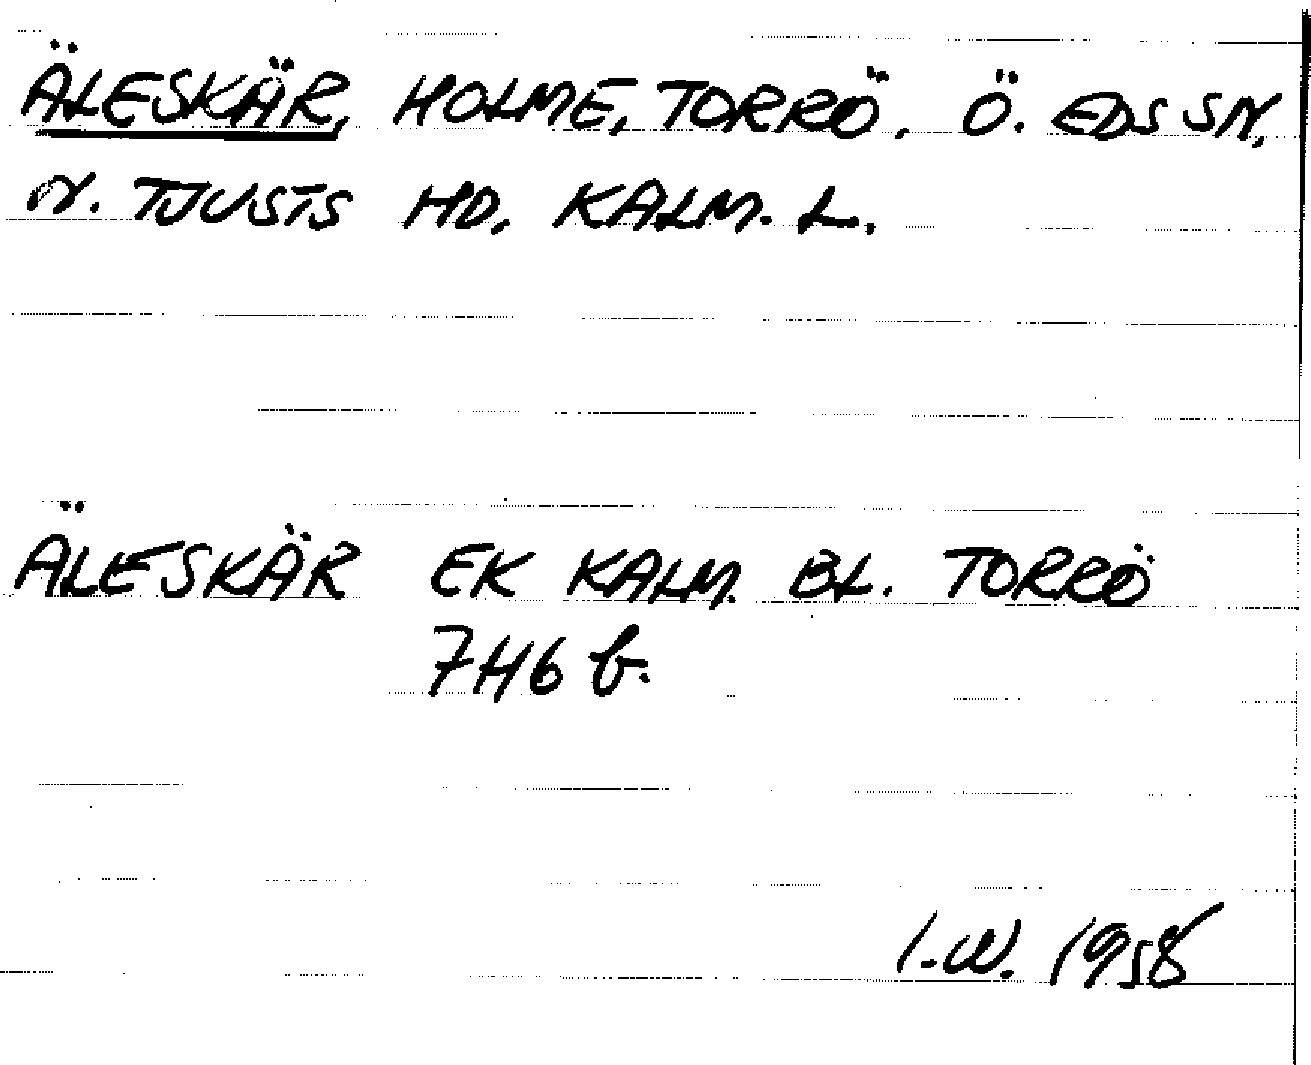 ÄLESKÄR, HOLME, TORRÖ, Ö. EDS SN,
N. TJUSTS HD, KALM. L.
ÄLESKÄR EK KALM. BL. TORRÖ
7H6 b.
I.W. 1958